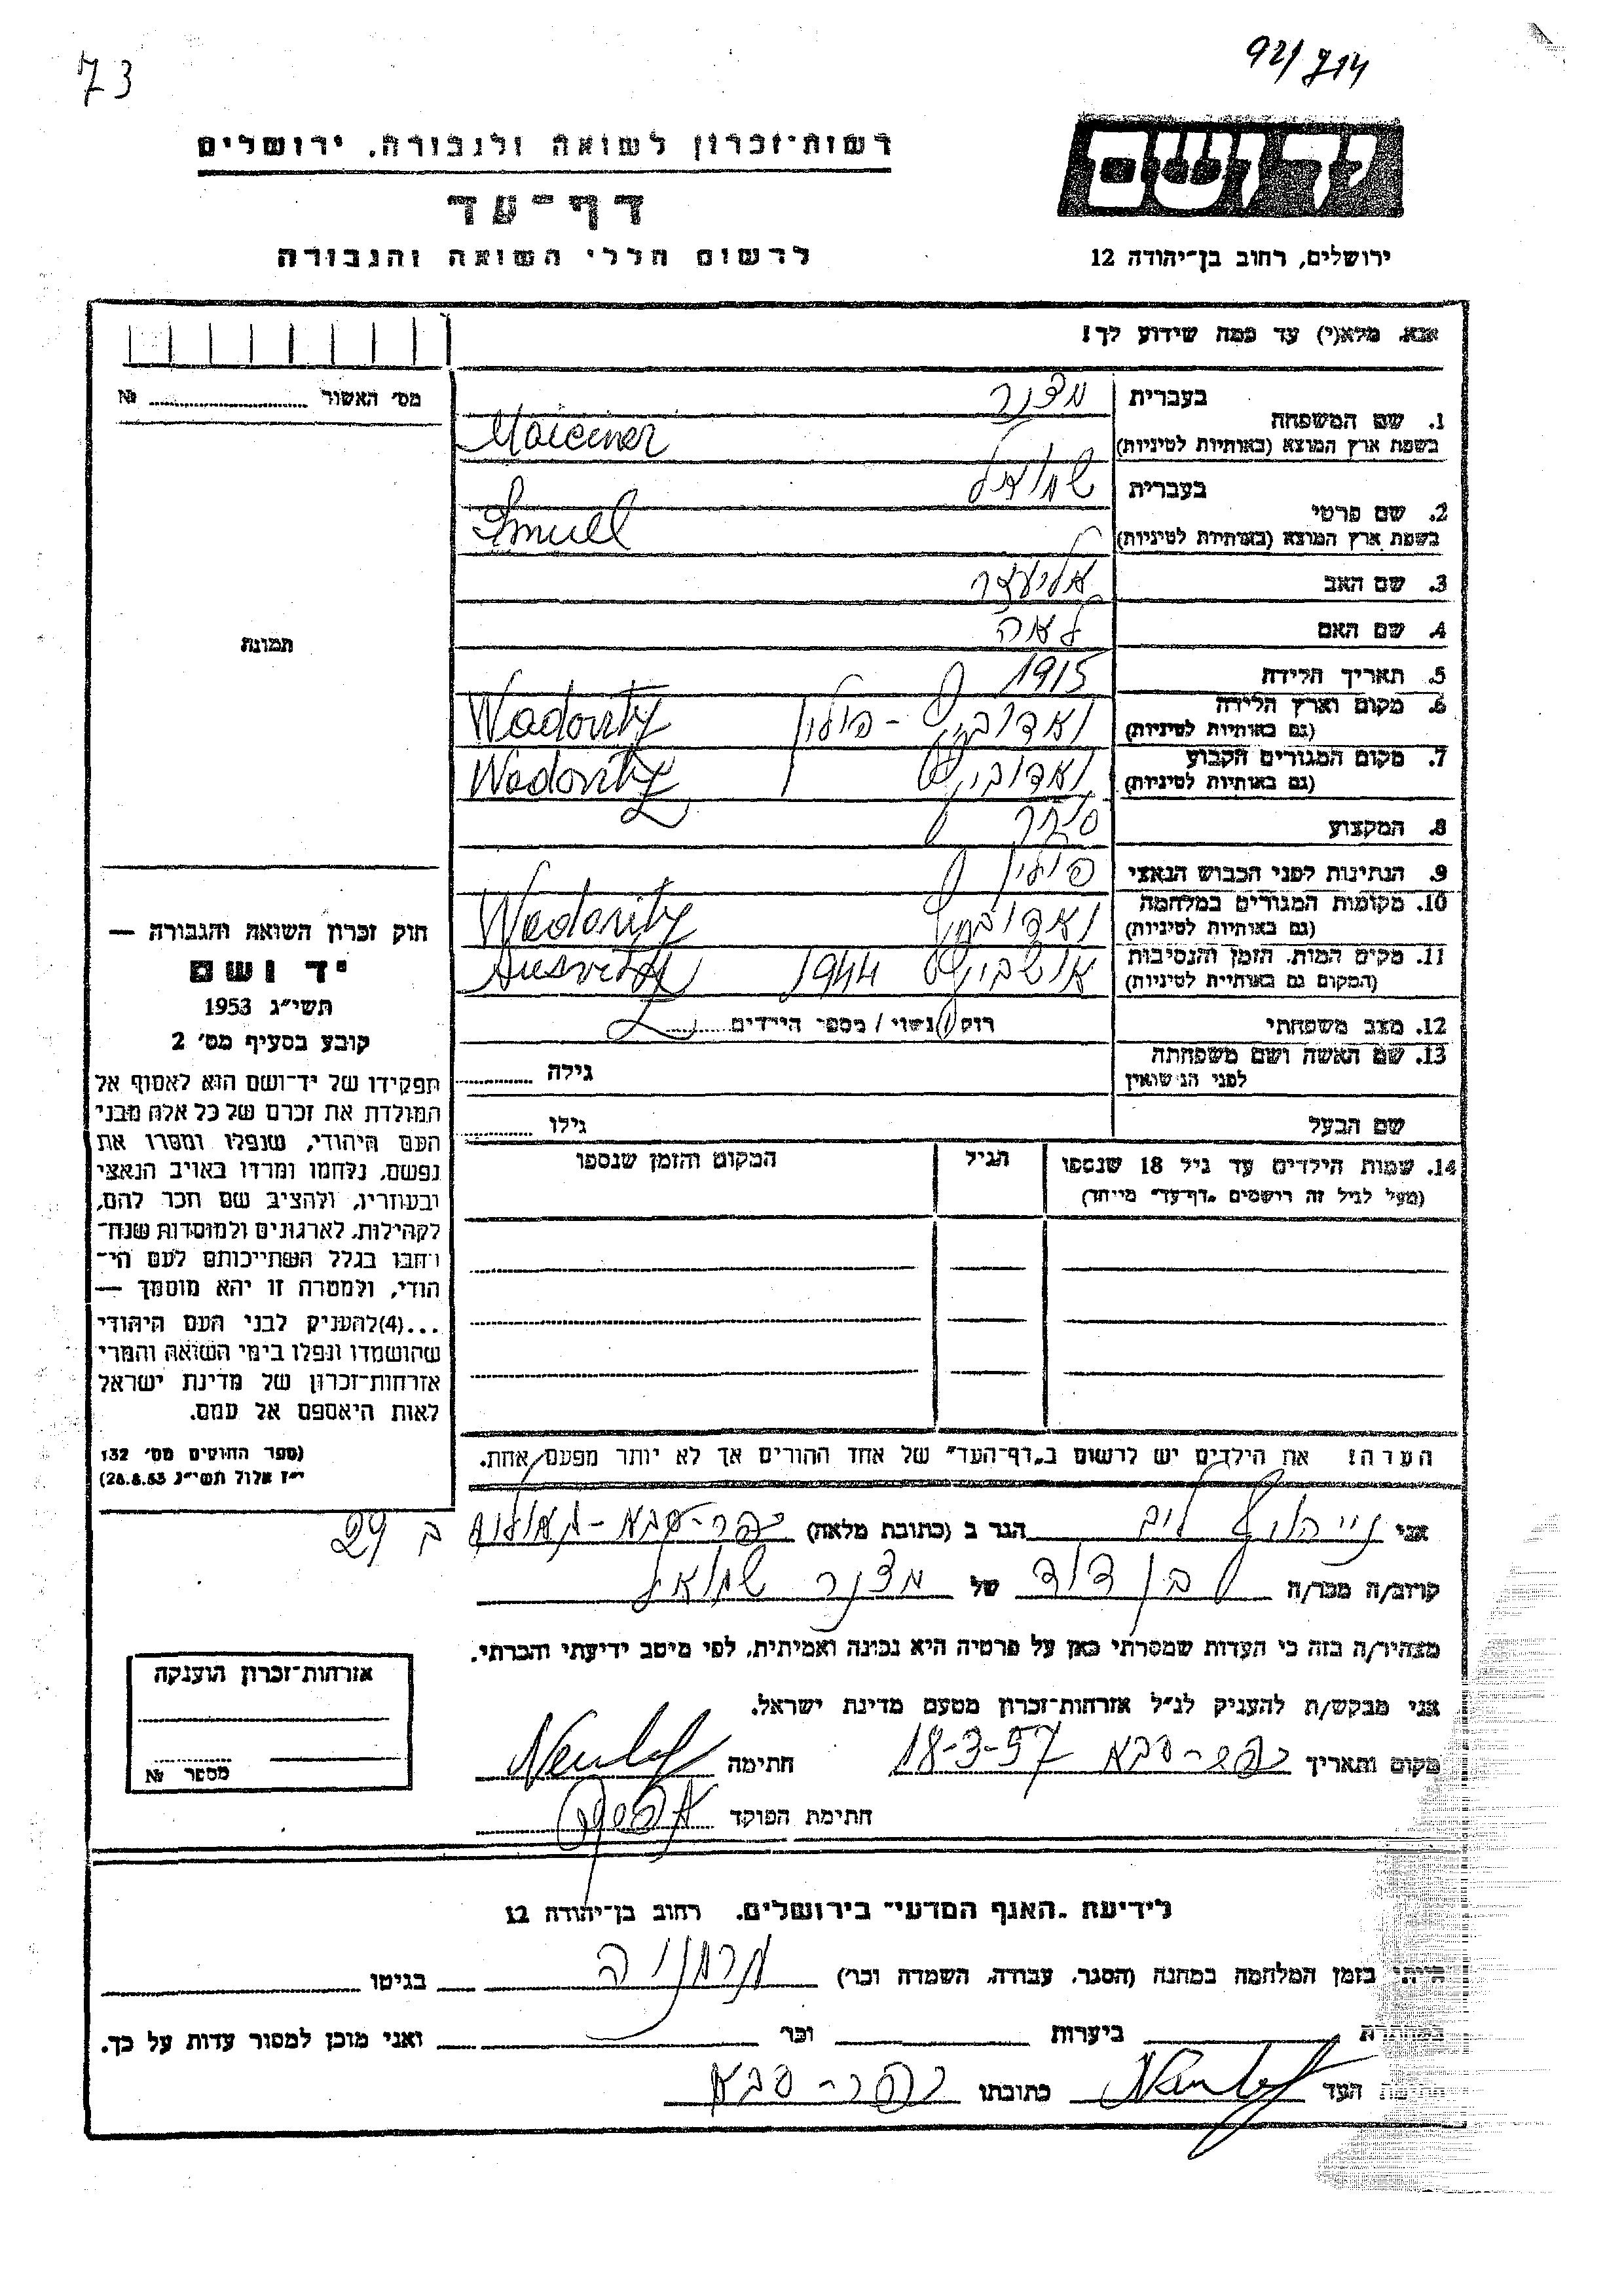 73
92/714
יד ושם
רשות-זכרון לשואה ולגבורה, ירושלים
דף-עד
לרשום חללי השואה והגבורה
ירושלים, רחוב בן-יהודה 12
אנא, מלא(י) עד כמה שידוע לך!
מס' האשור № 
בעברית מצנר
1. שם המשפחה
בשפת ארץ המוצא (באותיות לטיניות) Maiciner
בעברית שמואל
2. שם פרטי
בשפת ארץ המוצא (באותיות לטיניות) Smuel
3. שם האב אליעזר
4. שם האם לאה
5. תאריך הלידה 1915
6. מקום וארץ הלידה ואדוביץ - פולין Wadovitz
(גם באותיות לטיניות)
7. מקום המגורים הקבוע ואדוביץ Wadovitz
(גם באותיות לטיניות)
8. המקצוע סוחר
9. הנתינות לפני הכבוש הנאצי פולין
10. מקומות המגורים במלחמה ואדוביץ Wadovitz
(גם באותיות לטיניות)
11. מקום המות, הזמן והנסיבות אושביץ 1944
(המקום גם באותיות לטיניות)
12. מצב משפחתי רוק / נשוי / מספר הילדים
13. שם האשה ושם משפחתה
לפני הנישואין גילה
שם הבעל גילו
14. שמות הילדים עד גיל 18 שנספו הגיל המקום והזמן שנספו
(מעל לגיל זה רושמים "דף-עד" מיוחד)
תמונה
חוק זכרון השואה והגבורה —
יד ושם
תשי"ג 1953
קובע בסעיף מס' 2
תפקידו של יד-ושם הוא לאסוף אל
המולדת את זכרם של כל אלה מבני
העם היהודי, שנפלו ומסרו את
נפשם, נלחמו ומרדו באויב הנאצי
ובעוזריו, ולהציב שם וזכר להם,
לקהילות, לארגונים ולמוסדות שנח-
רבו בגלל השתייכותם לעם הי-
הודי, ולמטרה זו יהא מוסמך —
...(4)להעניק לבני העם היהודי
שהושמדו ונפלו בימי השואה והמרי
אזרחות-זכרון של מדינת ישראל
לאות היאספם אל עמם.
(ספר החוקים מס' 132
י"ז אלול תשי"ג 28.8.53)
הערה: את הילדים יש לרשום ב"דף-העד" של אחד ההורים אך לא יותר מפעם אחת.
אני לייב הגר ב (כתובת מלאה) כפר-סבא-גאולים ב 29
קרוב/ה מכר/ה בן דוד של מצנר שמואל
מצהיר/ה בזה כי העדות שמסרתי כאן על פרטיה היא נכונה ואמיתית, לפי מיטב ידיעתי והכרתי.
אני מבקש/ת להעניק לנ"ל אזרחות-זכרון מטעם מדינת ישראל.
מקום ותאריך כפר-סבא 18-3-57 חתימה
חתימת הפוקד
אזרחות-זכרון הוענקה
מספר №
לידיעת "האגף המדעי" בירושלים, רחוב בן-יהודה 12
הייתי בזמן המלחמה במחנה (הסגר, עבודה, השמדה וכו') גרמניה בגיטו
במחתרת ביערות וכו' ואני מוכן למסור עדות על כך.
חתימת העד כתובתו כפר-סבא